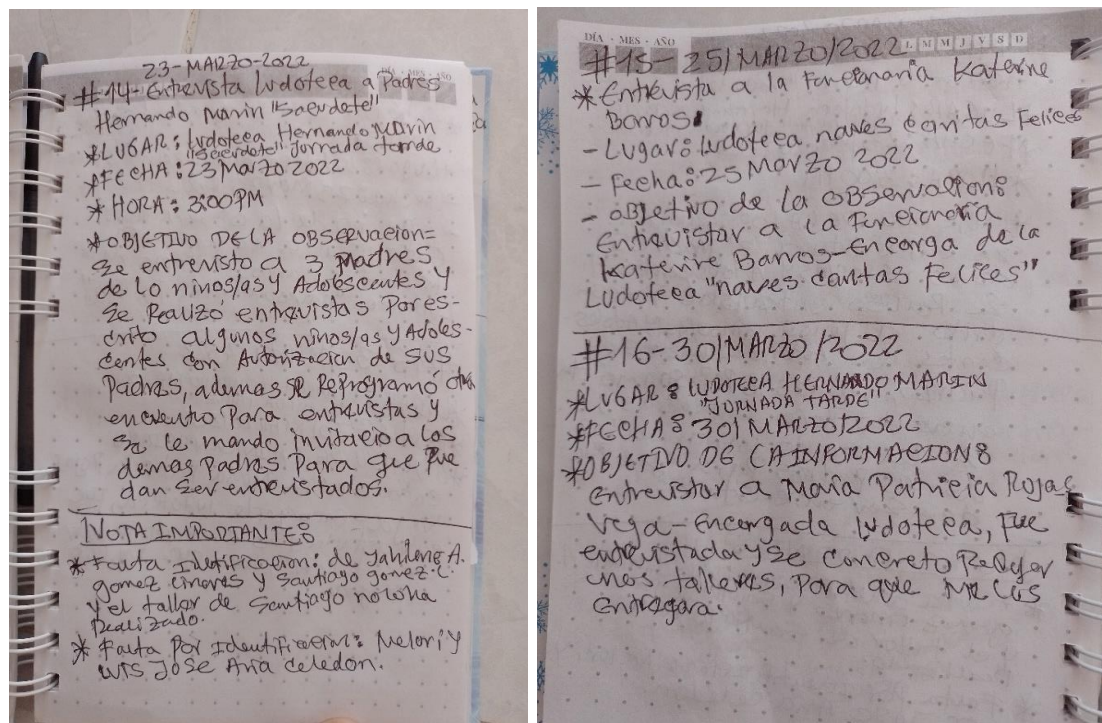 23-MARZO-2022
#14-Entrevista ludoteca a Padres
Hernando Marin "Sacerdote"
*LUGAR: ludoteca Hernando Marin
"Sacerdote" Jornada tarde
*FECHA: 23 Marzo 2022
* HORA: 3:00PM
*OBJETIVO DE LA OBSERVACION=
Se entrevisto a 3 Madres
de lo niños/as y Adolescentes y
Se Realizó entrevistas Por es-
crito algunos niños/as y Adoles-
centes con Autorizacion de sus
Padres, ademas se Reprogramó otro
encuentro Para entrevistas y
se le mando invitacio a los
demas Padres Para que pue
dan Ser entrevistados.
NOTA IMPORTANTE:
* Fauta Identificacion: de A.
gomez linares y Santiago gomez.
y el taller de Santiago no lo ha
Realizado.
* Fauta Por Identificacion: Melori y
luis Jose Aria Celedon.
DÍA · MES · AÑO
L M M J V S D
#15- 25/MARZO/2022
*Entrevista a la Funcionaria Katerine
Barros.
- Lugar: ludoteca naves caritas Felices
- Fecha: 25 Marzo 2022
- OBJetivo de la OBServacion:
Entrevistar a la Funcionaria
Katerine Barros-Encarga de la
Ludoteca "naves caritas Felices"
#16-30/MARZO/2022
*LUGAR: LUDOTECA HERNANDO MARIN
"JORNADA TARDE"
*FECHA: 30/MARZO/2022
*OBJETIVO DE LA INFORMACION:
entrevistar a Maria Patricia Rojas
Vega-Encargada ludoteca, Fue
entrevistada y se Concreto
unos talleres, Para que me los
entregara.